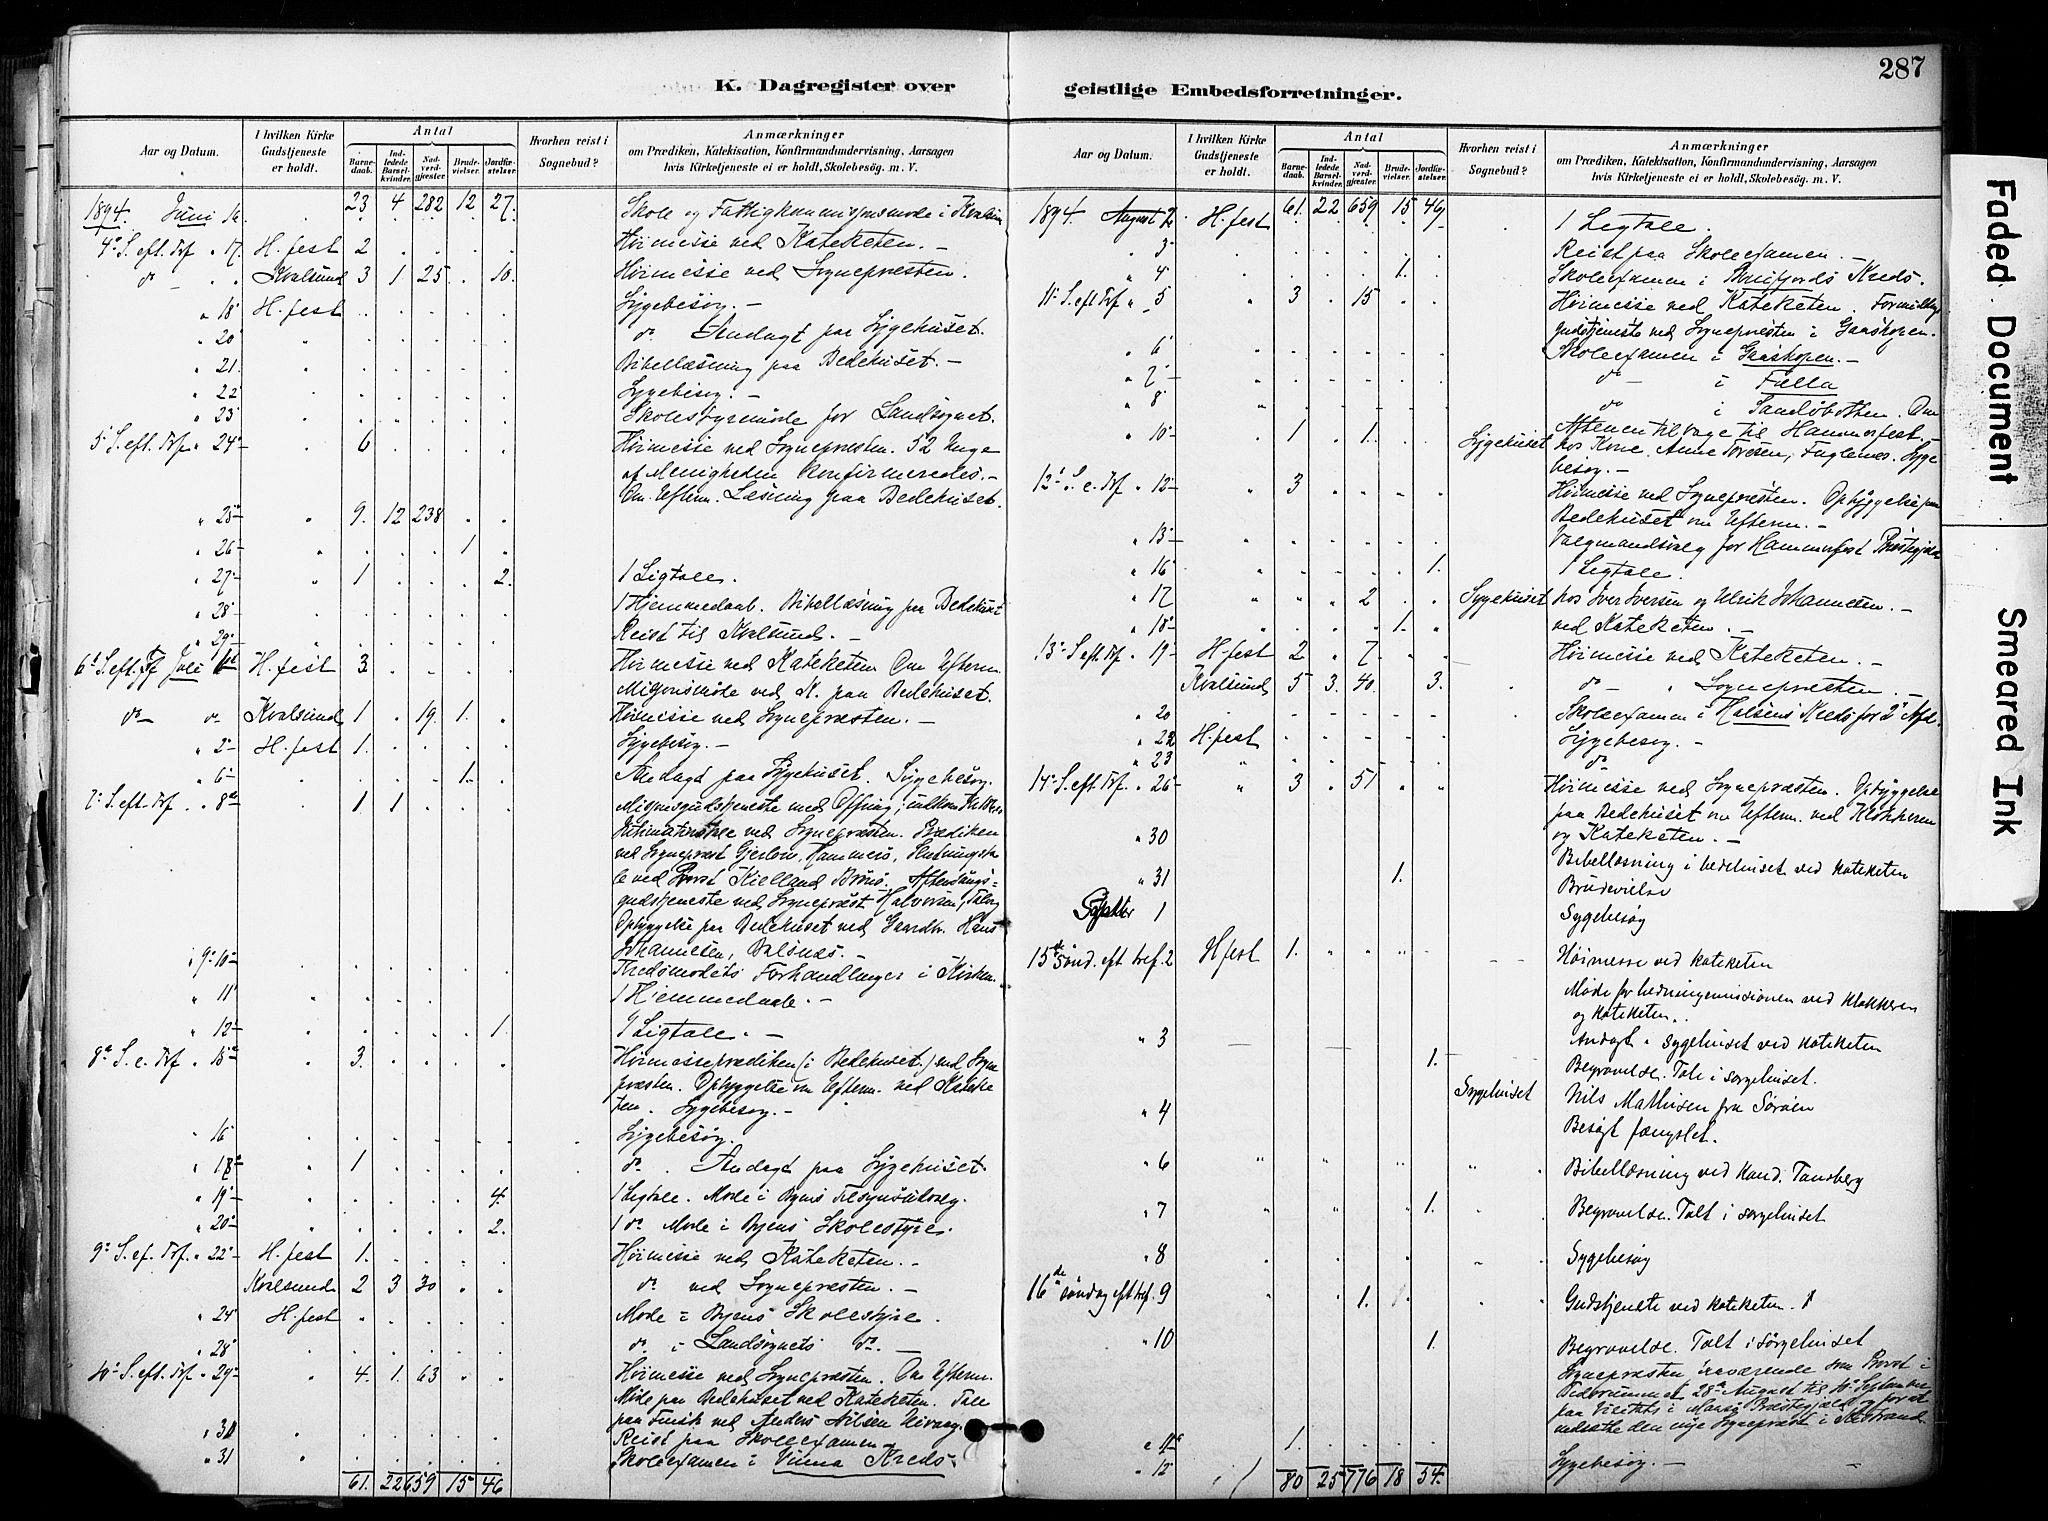 287
K. Dagregister over geistlige Embedsforretninger.
Faded Document
Smeared Ink
Aar og Datum.
I hvilken Kirke Gudstjeneste er holdt.
Antal
Barnedaab.
Indledede Barselkvinder.
Nadverdgjæster.
Brudevielser.
Jordfæstelser.
Hvorhen reist i Sognebud?
Anmærkninger
om Prædiken, Katekisation, Konfirmandundervisning, Aarsagen
hvis Kirketjeneste ei er holdt, Skolebesøg. m. V.
1894. Juni 16 23 4 282 12 27. Skole og Fattigkommisjonsmøde i Kvalsund
4de S. eft. Trf " 17. H. fest 2 Høimesse ved Kateketen. —
do — " Kvalsund 3 1 25 10. Høimesse ved Sognepresten.
" 18 H. fest Sygebesøg. —
" 20 do Andagt paa Sygehuset.
" 21. Bibellæsning paa Bedehuset. —
" 22 Sygebesøg. —
" 23 Skolestyremøde for Landsognet.
5 S. eft. Trf " 24 6 Høimesse ved Sognepræsten. 52 Unge
af Menigheden konfirmeredes. —
Om Efterm. Læsning paa Bedehuset.
" 25 9. 12 238
" 26 1
" 27 1 2. 1 Ligtale.
" 28 1 Hjemmedaab. Bibellæsning paa Bedehuset
" 29 Reist til Kvalsund. —
6 S. eft. Trf Juli 1 H. fest 3 Høimesse ved Kateketen Om Efterm.
Misjonsmøde ved K. paa Bedehuset.
do — do Kvalsund 1 19. 1. Høimesse ved Sognepræsten. —
" 2 H. fest 1. Sygebesøg. —
" 6 1. Andagt paa Sygehuset. Sygebesøg.
7 S. eft. Trf. " 8 1 1 Misjonsgudstjeneste med Ofring;
ved Sognepræsten. Prædiken
ved Sogneprest Gjerlow, Hammerø,
ved Provst Kielland Aftensangs=
gudstjeneste ved Sognepræst Halvorsen,
Opbyggelse paa Bedehuset ved Gaardbr. Hans
Johannesen,
" 9-10 Kredsmødets Forhandlinger i Kirken.
" 11 1 Hjemmedaab. —
" 12 1. 1 Ligtale. —
8 S. e. Trf " 15 3. Høimesseprædiken (i Bedehuset) ved Sogne
præsten. Opbyggelse om Efterm. ved Kateke
ten. Sygebesøg. —
" 16 Sygebesøg.
" 18 1 do. Andagt paa Sygehuset.
" 19 4. 1 Ligtale. Møde i Byens Tilsynsudvalg.
" 20 2. 1 do Møde i Byens Skolestyre.
9 S. ef. Trf. " 22 H. fest 1. Høimesse ved Kateketen. —
Kvalsund 2 3 30 do ved Sognepræsten. —
" 24 H. fest Møde i Byens Skolestyre.
" 28 do i Landsognets do. —
10 S. eft. Trf " 29 4. 1 63 Høimesse ved Sognepræsten. Om Efterm.
Møde paa Bedehuset ved Kateketen. Tale
paa Finsk ved Anders Nilsen
" 30 Reist paa Skoleexamen
" 31 Skoleexamen i Kreds.
61. 22 659 15 46
Aar og Datum.
I hvilken Kirke Gudstjeneste er holdt.
Antal
Barnedaab.
Indledede Barselkvinder.
Nadverdgjæster.
Brudevielser.
Jordfæstelser.
Hvorhen reist i Sognebud?
Anmærkninger
om Prædiken, Katekisation, Konfirmandundervisning, Aarsagen
hvis Kirketjeneste ei er holdt, Skolebesøg. m. V.
1894. August 2 H. fest 61. 22 659 15 46 1 Ligtale.
3 Reist paa Skoleexamen. —
" 4 1. Skoleexamen i Kreds.
11 S. eft Trf " 5 3 15 Høimesse ved Kateketen. Formiddags
gudstjeneste ved Sognepræsten i Gaashopen.
" 6 Skoleexamen i Gaashopen. —
" 7 do — i Fælla
" 8 do i Sandøbotten. Om
Aftenen tilbage til Hammerfest. —
" 10 1 1. Sygehuset hos Kone Anne Toresen, Fuglenes. Syge
besøg. —
12 S. e. Trf " 12 3 Høimesse ved Sognepræsten. Opbyggelse paa
Bedehuset om Efterm. —
" 13 Valgmandsvalg for Hammerfest
" 16 1. 1 Ligtale.
" 17 2 Sygehuset hos Iver Iversen og Ulrik Johannesen. —
" 18 1. ved Kateketen. —
13 S. eft. Trf " 19 H. fest 2 7. Høimesse ved Kateketen. —
Kvalsund 5 3. 40. 3. do — " Sognepræsten. —
" 20 Skoleexamen i Kreds for 2 Afd.
" 22 H. fest Sygebesøg. —
" 23 do
14 S. eft. Trf. " 26 3 51 Høimesse ved Sognepræsten. Opbyggelse
paa Bedehuset om Efterm. ved Klokkeren
og Kateketen. —
" 30 Bibellæsning i bedehuset ved kateketen
" 31 1. Brudevielse
Septbr 1 Sygebesøg
15de Sønd. eft tref. 2 H fest 1. Høimesse ved kateketen
Møde for hedningemissionen ved klokkeren
og kateketen.
" 3 Andagt i sygehuset ved kateketen
1. Begravelse. Tale i sørgehuset.
" 4 Sygehuset Nils Mathisen fra Sørøen
Besøgt fængslet.
" 6 Bibellæsning ved kand. Tansberg
" 7 1. Begravelse. Talt i sørgehuset
" 8 Sygebesøg
16de søndag eft tref. 9 1. Gudstjeneste ved kateketen.
" 10 1. Begravelse. Talt i sørgehuset
Sognepræsten fraværende som Provst i
Tidsrummet 28 August til 10 September
paa Visitats i Præstegjæld
den nye Sognepræst i
" 11 1.
" 12 Sygebesøg. —
80 25 776 18 54.